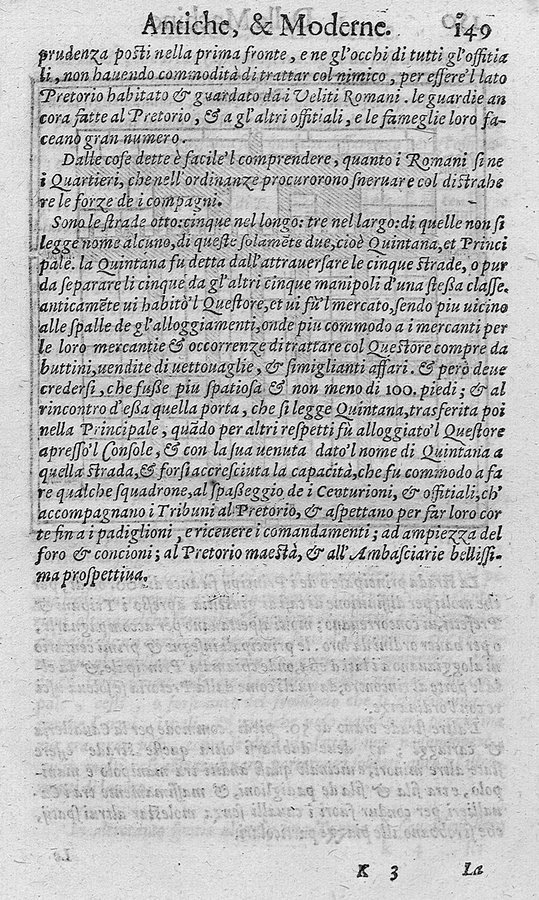 Antiche, & Moderne. 149
prudenza posti nella prima fronte, e ne gl'occhi di tutti gl'offitia
li, non hauendo commodità di trattar col nimico, per essere'l lato
Pretorio habitato & guardato da i Veliti Romani. le guardie an
cora fatte al Pretorio, & a gl'altri offitiali, e le fameglie loro fa-
ceano gran numero.
Dalle cose dette è facile'l comprendere, quanto i Romani si ne
i Quartieri, che nell'ordinanze procurorono sneruare col distrahe
re le forze de i compagni.
Sono le strade otto: cinque nel longo: tre nel largo: di quelle non si
legge nome alcuno, di queste solamēte due, cioè Quintana, et Princi
pale. la Quintana fu detta dall'attrauersare le cinque strade, o pur
da separare li cinque da gl'altri cinque manipoli d'una stessa classe.
anticamēte ui habitò'l Questore, et ui fù'l mercato, sendo piu uicino
alle spalle de gl'alloggiamenti, onde piu commodo a i mercanti per
le loro mercantie & occorrenze di trattare col Questore compre da
buttini, uendite di uettouaglie, & simiglianti affari. & però deue
credersi, che fusse piu spatiosa & non meno di 100. piedi; & al
rincontro d'essa quella porta, che si legge Quintana, trasferita poi
nella Principale, quādo per altri respetti fù alloggiato'l Questore
apresso'l Console, & con la sua venuta dato'l nome di Quintana a
quella strada, & forsi accresciuta la capacità, che fu commodo a fa
re qualche squadrone, al spasseggio de i Centurioni, & offitiali, ch'
accompagnano i Tribuni al Pretorio, & aspettano per far loro cor
te fin a i padiglioni, e riceuere i comandamenti; ad ampiezza del
foro & concioni; al Pretorio maestà, & all'Ambasciarie bellissi-
ma prospettiua.
K 3 La